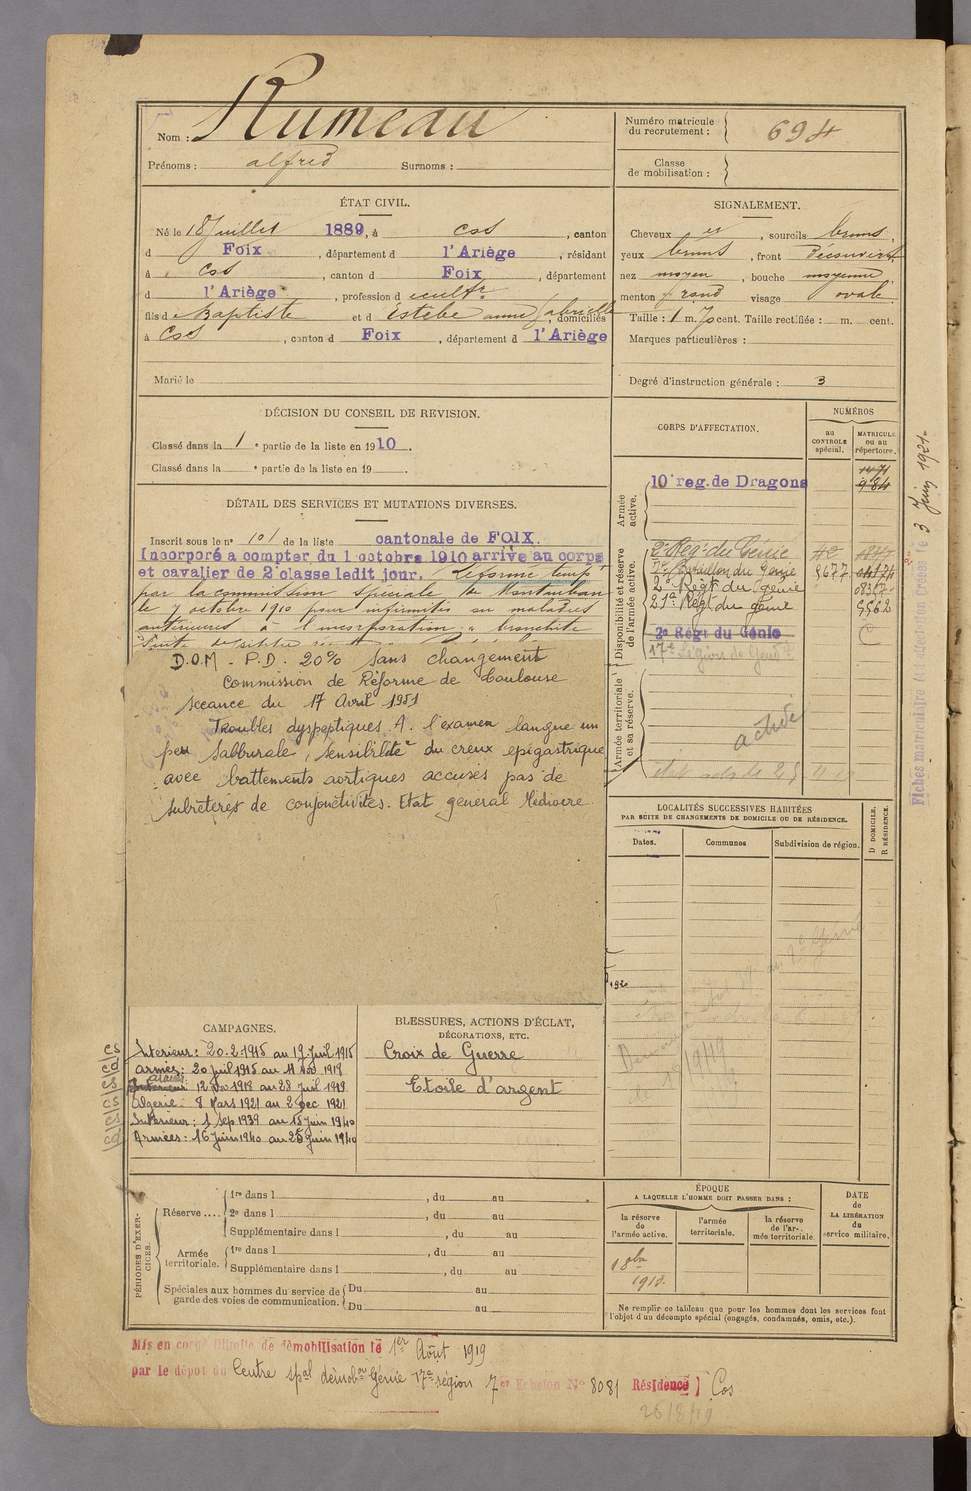 Nom : Rumeau
Prénoms : alfred Surnoms :
Numéro matricule du recrutement : 694
Classe de mobilisation :
ÉTAT CIVIL.
Né le 18 Juillet 1889, à Cos, canton
d Foix, département d l'Ariège, résidant
à Cos, canton d Foix, département
d l'Ariège, profession d cultr
fils de Baptiste et d Estèbe anne Gabrielle, domiciliés
à Cos, canton d Foix, département d l'Ariège
Marié le
SIGNALEMENT.
Cheveux et, sourcils bruns,
yeux bruns, front découvert
nez moyen, bouche moyenne
menton rond visage ovale
Taille : 1 m. 70 cent. Taille rectifiée : m. cent.
Marques particulières :
Degré d'instruction générale : 3
DÉCISION DU CONSEIL DE REVISION.
Classé dans la 1e partie de la liste en 1910.
Classé dans la e partie de la liste en 19 .
DÉTAIL DES SERVICES ET MUTATIONS DIVERSES.
Inscrit sous le n° 101 de la liste cantonale de FOIX.
Incorporé a compter du 1 octobre 1910 arrivé au corps
et cavalier de 2e classe ledit jour. Réformé tempre
par la commission spéciale de Montauban
le 7 octobre 1910 pour infirmités ou maladies
antérieures à l'incorporation : bronchite
D.O.M - P.D. 20% Sans changement
Commission de Réforme de Toulouse
Sceance du 17 Avril 1951
Troubles dyspeptiques A. l'examen langue un
peu Sabburale, Sensibilité du creux epigastrique
avec battements aortiques accusés pas de
Subictères de conjonctivites. Etat general Médiocre.
CORPS D'AFFECTATION.
NUMÉROS
au CONTROLE spécial.
MATRICULE ou au répertoire.
Armée active.
10e reg. de Dragons 984
Disponibilité et réserve de l'armée active.
2e Régt du Génie
7e Bataillon du Génie 8677
2e Régt du Génie
21e Régt du génie 9562
2e Régt du Génie C
17e Légion de Gendie
Armée territoriale et sa réserve.
activé
Fiches matriculaire Md allocation Créées le 3 Juin 1921.
LOCALITÉS SUCCESSIVES HABITÉES
PAR SUITE DE CHANGEMENTS DE DOMICILE OU DE RÉSIDENCE.
Dates. Communes Subdivision de région. D DOMICILE. R RÉSIDENCE.
CAMPAGNES.
Interieur : 20.2.1915 au 19 Juil 1915
Armées : 20 Juil 1915 au 11 Nov 1918
Interieur 12 Nov 1918 au 28 Juil 1919
Algerie : 8 Mars 1921 au 2 Dec 1921
Interieur : 1 Sep 1939 au 15 Juin 1940
Armées : 16 Juin 1940 au 25 Juin 1940
BLESSURES, ACTIONS D'ÉCLAT,
DÉCORATIONS, ETC.
Croix de Guerre
Etoile d'argent
PÉRIODES D'EXERCICES.
Réserve .... 1re dans l , du au
2e dans l , du au
Supplémentaire dans l , du au
Armée territoriale. 1re dans l , du au
Supplémentaire dans l , du au
Spéciales aux hommes du service de garde des voies de communication. Du au
Du au
ÉPOQUE
A LAQUELLE L'HOMME DOIT PASSER DANS :
la réserve de l'armée active.
l'armée territoriale.
la réserve de l'armée territoriale.
DATE de LA LIBÉRATION du service militaire.
1 8bre
1913.
Ne remplir ce tableau que pour les hommes dont les services font
l'objet d'un décompte spécial (engagés, condamnés, omis, etc.).
Mis en congé illimité de démobilisation le 1er Août 1919
par le dépot du Centre spal démobon Génie 17e région 7e Echelon N° 8081 Résidence Cos
26/8/19